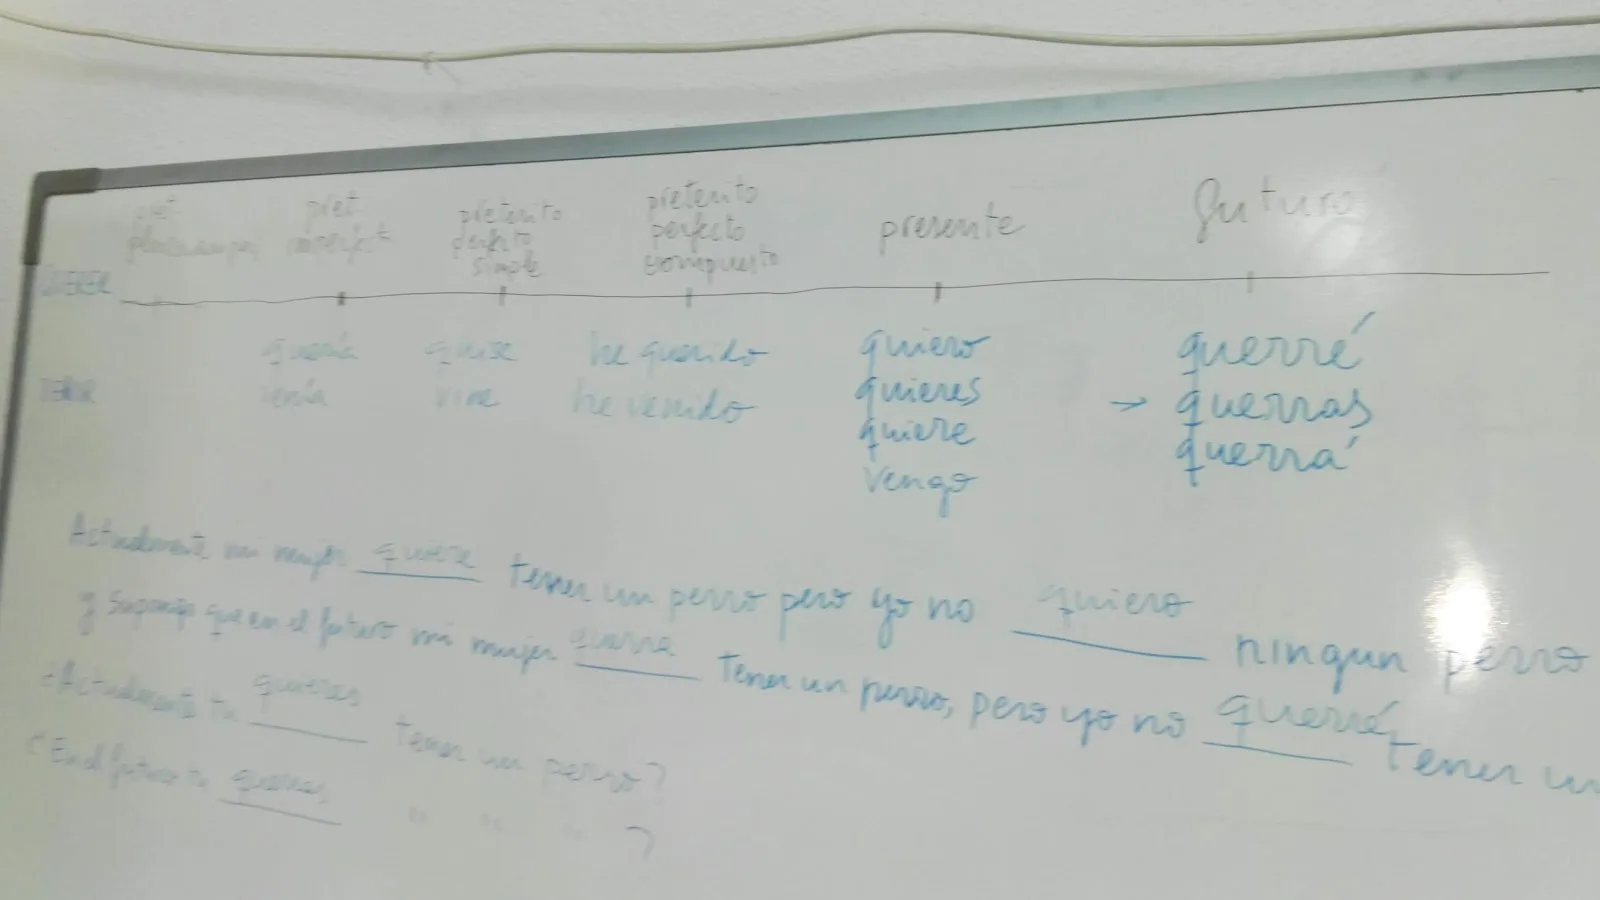 pret pluscuamper
pret imperfect
pretérito perfecto simple
pretérito perfecto compuesto
presente
futuro
QUERER
quería quise he querido quiero querré
quieres → querras
quiere querrá
VENIR venía vine he venido vengo
Actualmente mi mujer quiere tener un perro pero yo no quiero ningun perro
y que en el futuro mi mujer querra tener un perro, pero yo no querré tener un
¿Actualmente tu quieres tener un perro?
¿En el futuro tu querras " " " ?